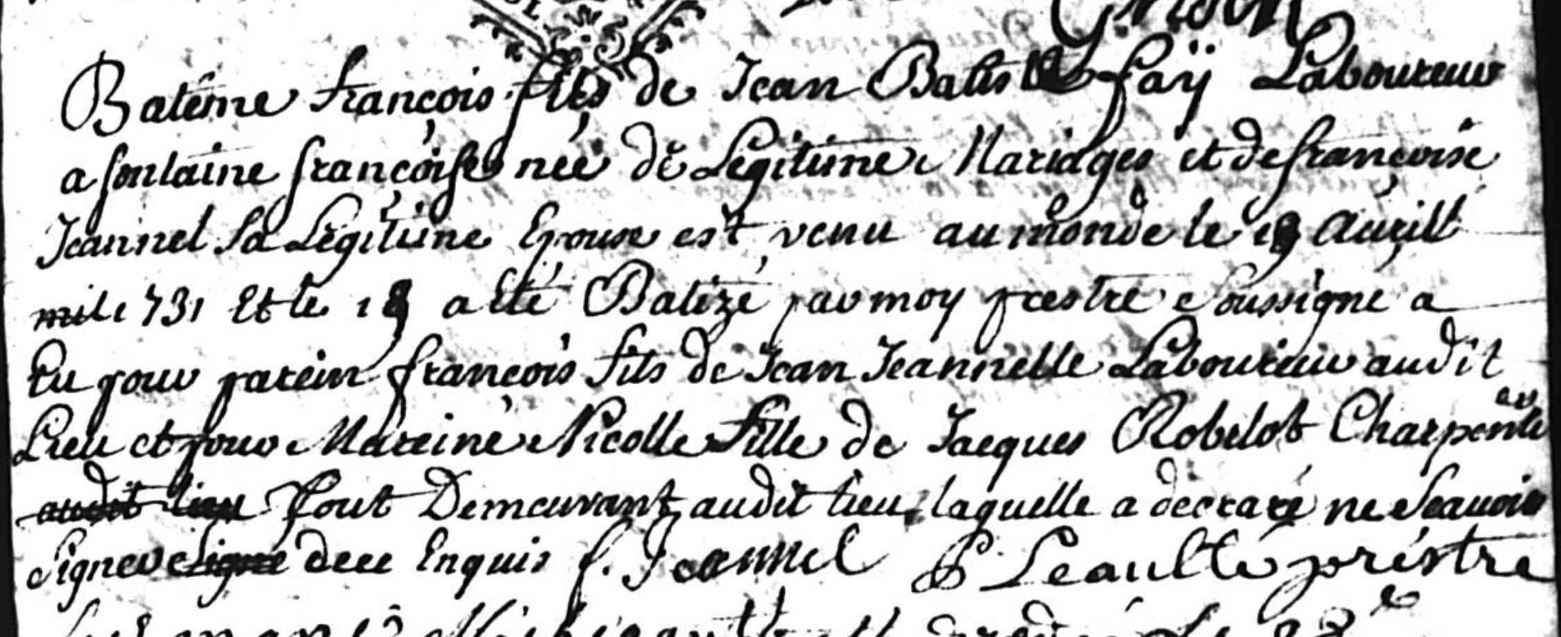 Batême françois fils de Jean Batiste faÿ Laboureur
a fontaine françoise née de Legitime Mariages et de françoise
Jeannel Sa Legitime Epouse est venu au monde le 18 Avrill
mile 731 Et le 18 a été Batizé par moy prestre Soussigné a
Eu pour parein françois fils de Jean Jeannelle Laboureur audit
Lieu et pour Mareine Nicolle fille de Jacques Robelot Charpentie
audit lieu tout Demeurant audit lieu laquelle a decraré ne Scauoir
Signer signé dece Enquis f. Jeannel P Leaulté prestre